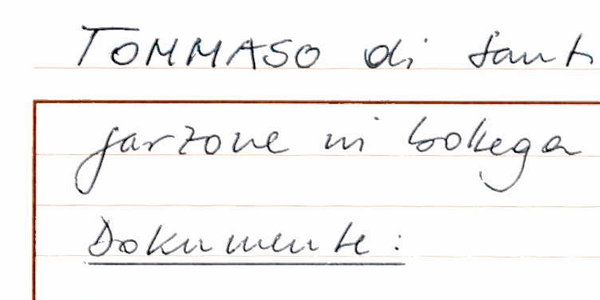 TOMMASO di Santi
garzone in bottega
Dokumente: